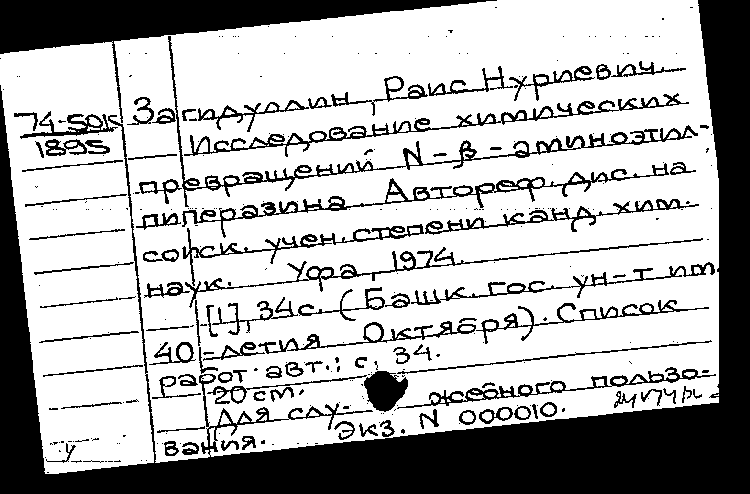 74-501к
1895
Загидуллин, Раис Нуриевич.
Исследование химических
превращений N-β-аминоэтил-
пиперазина. Автореф. дис. на
соиск. учен. степени канд. хим.
наук. Уфа, 1974.
[1], 34с. (Башк. гос. ун-т им.
40-летия Октября). Список
работ авт.: с. 34.
20 cm.
Для служебного пользо-
вания. Экз. N 000010.
у